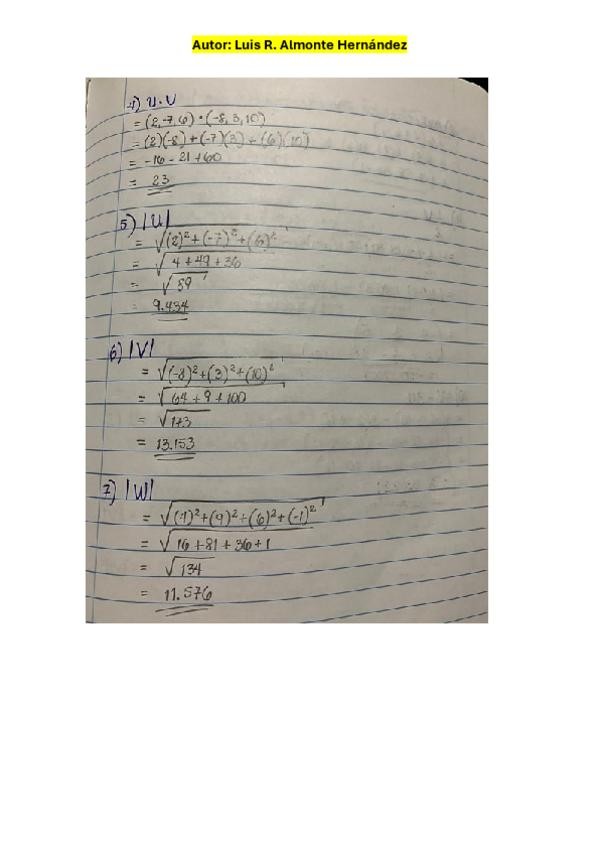 Autor: Luis R. Almonte Hernández
4) U.V
= (2,-7,6) • (-8, 3, 10)
= (2)(-8) + (-7)(3) + (6)(10)
= -16 - 21 + 60
= 23
5) |U|
= √(2)² + (-7)² + (6)²
= √4 + 49 + 36
= √89
= 9.434
6) |V|
= √(-8)² + (3)² + (10)²
= √64 + 9 + 100
= √173
= 13.153
7) |W|
= √(4)² + (9)² + (6)² + (-1)²
= √16 + 81 + 36 + 1
= √134
= 11.576